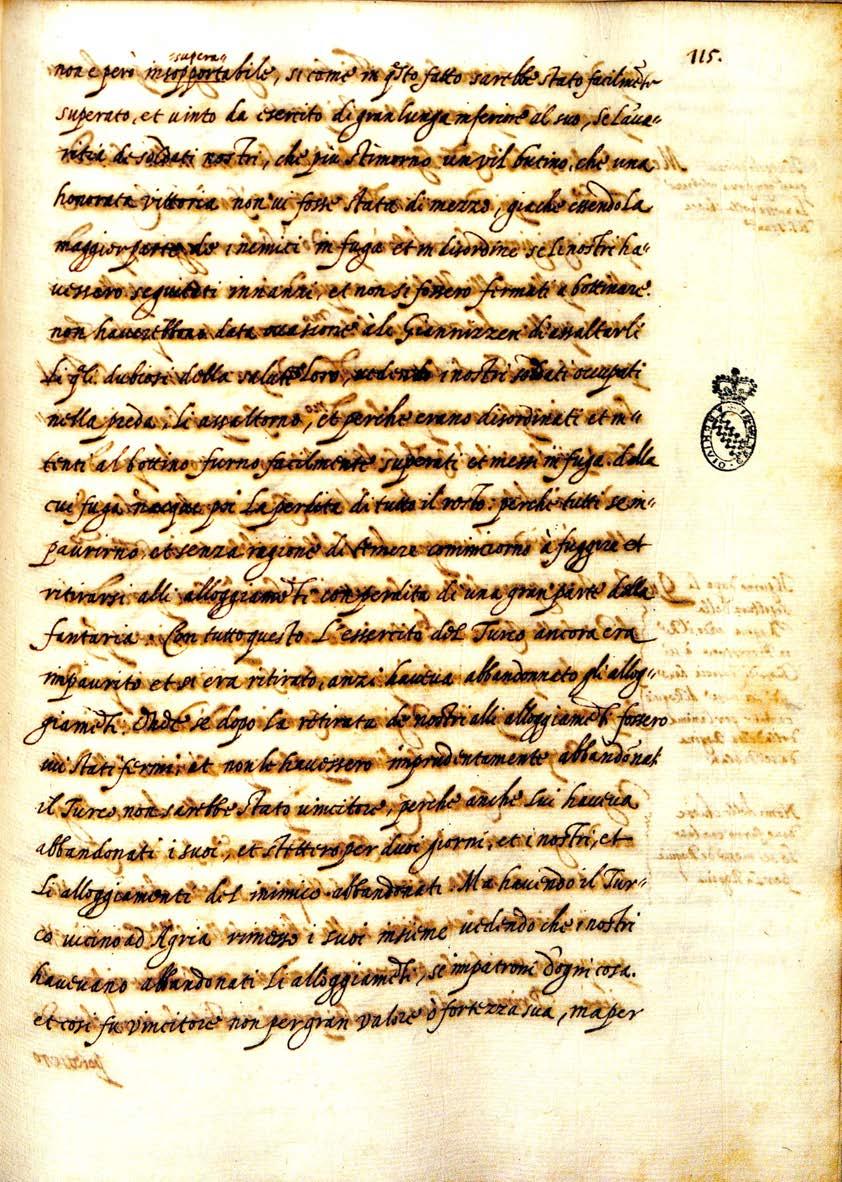 115.
supera"
non e però insopportabile, si come in q̃sto fatto sarebbe stato facilmẽte
superato, et uinto da esercito di gran lunga inferiore al suo, se l'aua"
ritia de soldati nostri, che più stimorno un vil butino, che una
honorata vittoria non ui fosse stata di mezzo, giache essendo la
maggior parte de i nemici in fuga et in disordine se li nostri ha"
uessero seguitati innanzi, et non si fossero fermati a bottinare.
non hauerebbono data occasione à le Giannizzere di assaltarli
li q̃li dubiosi della salute loro, uedendo i nostri soldati occupati
nella preda, li assaltorno, et perche erano disordinati et in"
tenti al bottino furno facilmente superati et messi in fuga. dalla
cui fuga nacque poi la perdita di tutto il resto: perche tutti se im"
paurirno, et senza ragione di temere cominciorno à fuggire et
ritirarsi alli alloggiamẽti con perdita di una gran parte della
fantaria. Con tutto questo L'essercito del Turco ancora era
impaurito et si era ritirato, anzi haueua abbandonato gli allog"
giamẽti. Onde se dopo la retirata de nostri alli alloggiamẽti fossero
iui stati fermi, et non le hauessero imprudentamente abbandonati
il Turco non sarebbe stato vincitore, perche anche lui haueua
abbandonati i suoi, et stettero per duoi giorni, et i nostri, et
li alloggiamenti del inimico abbandonati. Ma hauendo il Tur"
co uicino ad Agria rimesso i suoi insieme uedendo che i nostri
haueuano abbandonati li alloggiamẽti, se impatronì d'ogni cosa.
et cosi fu vincitore non per gran valore ò fortezza sua, ma per